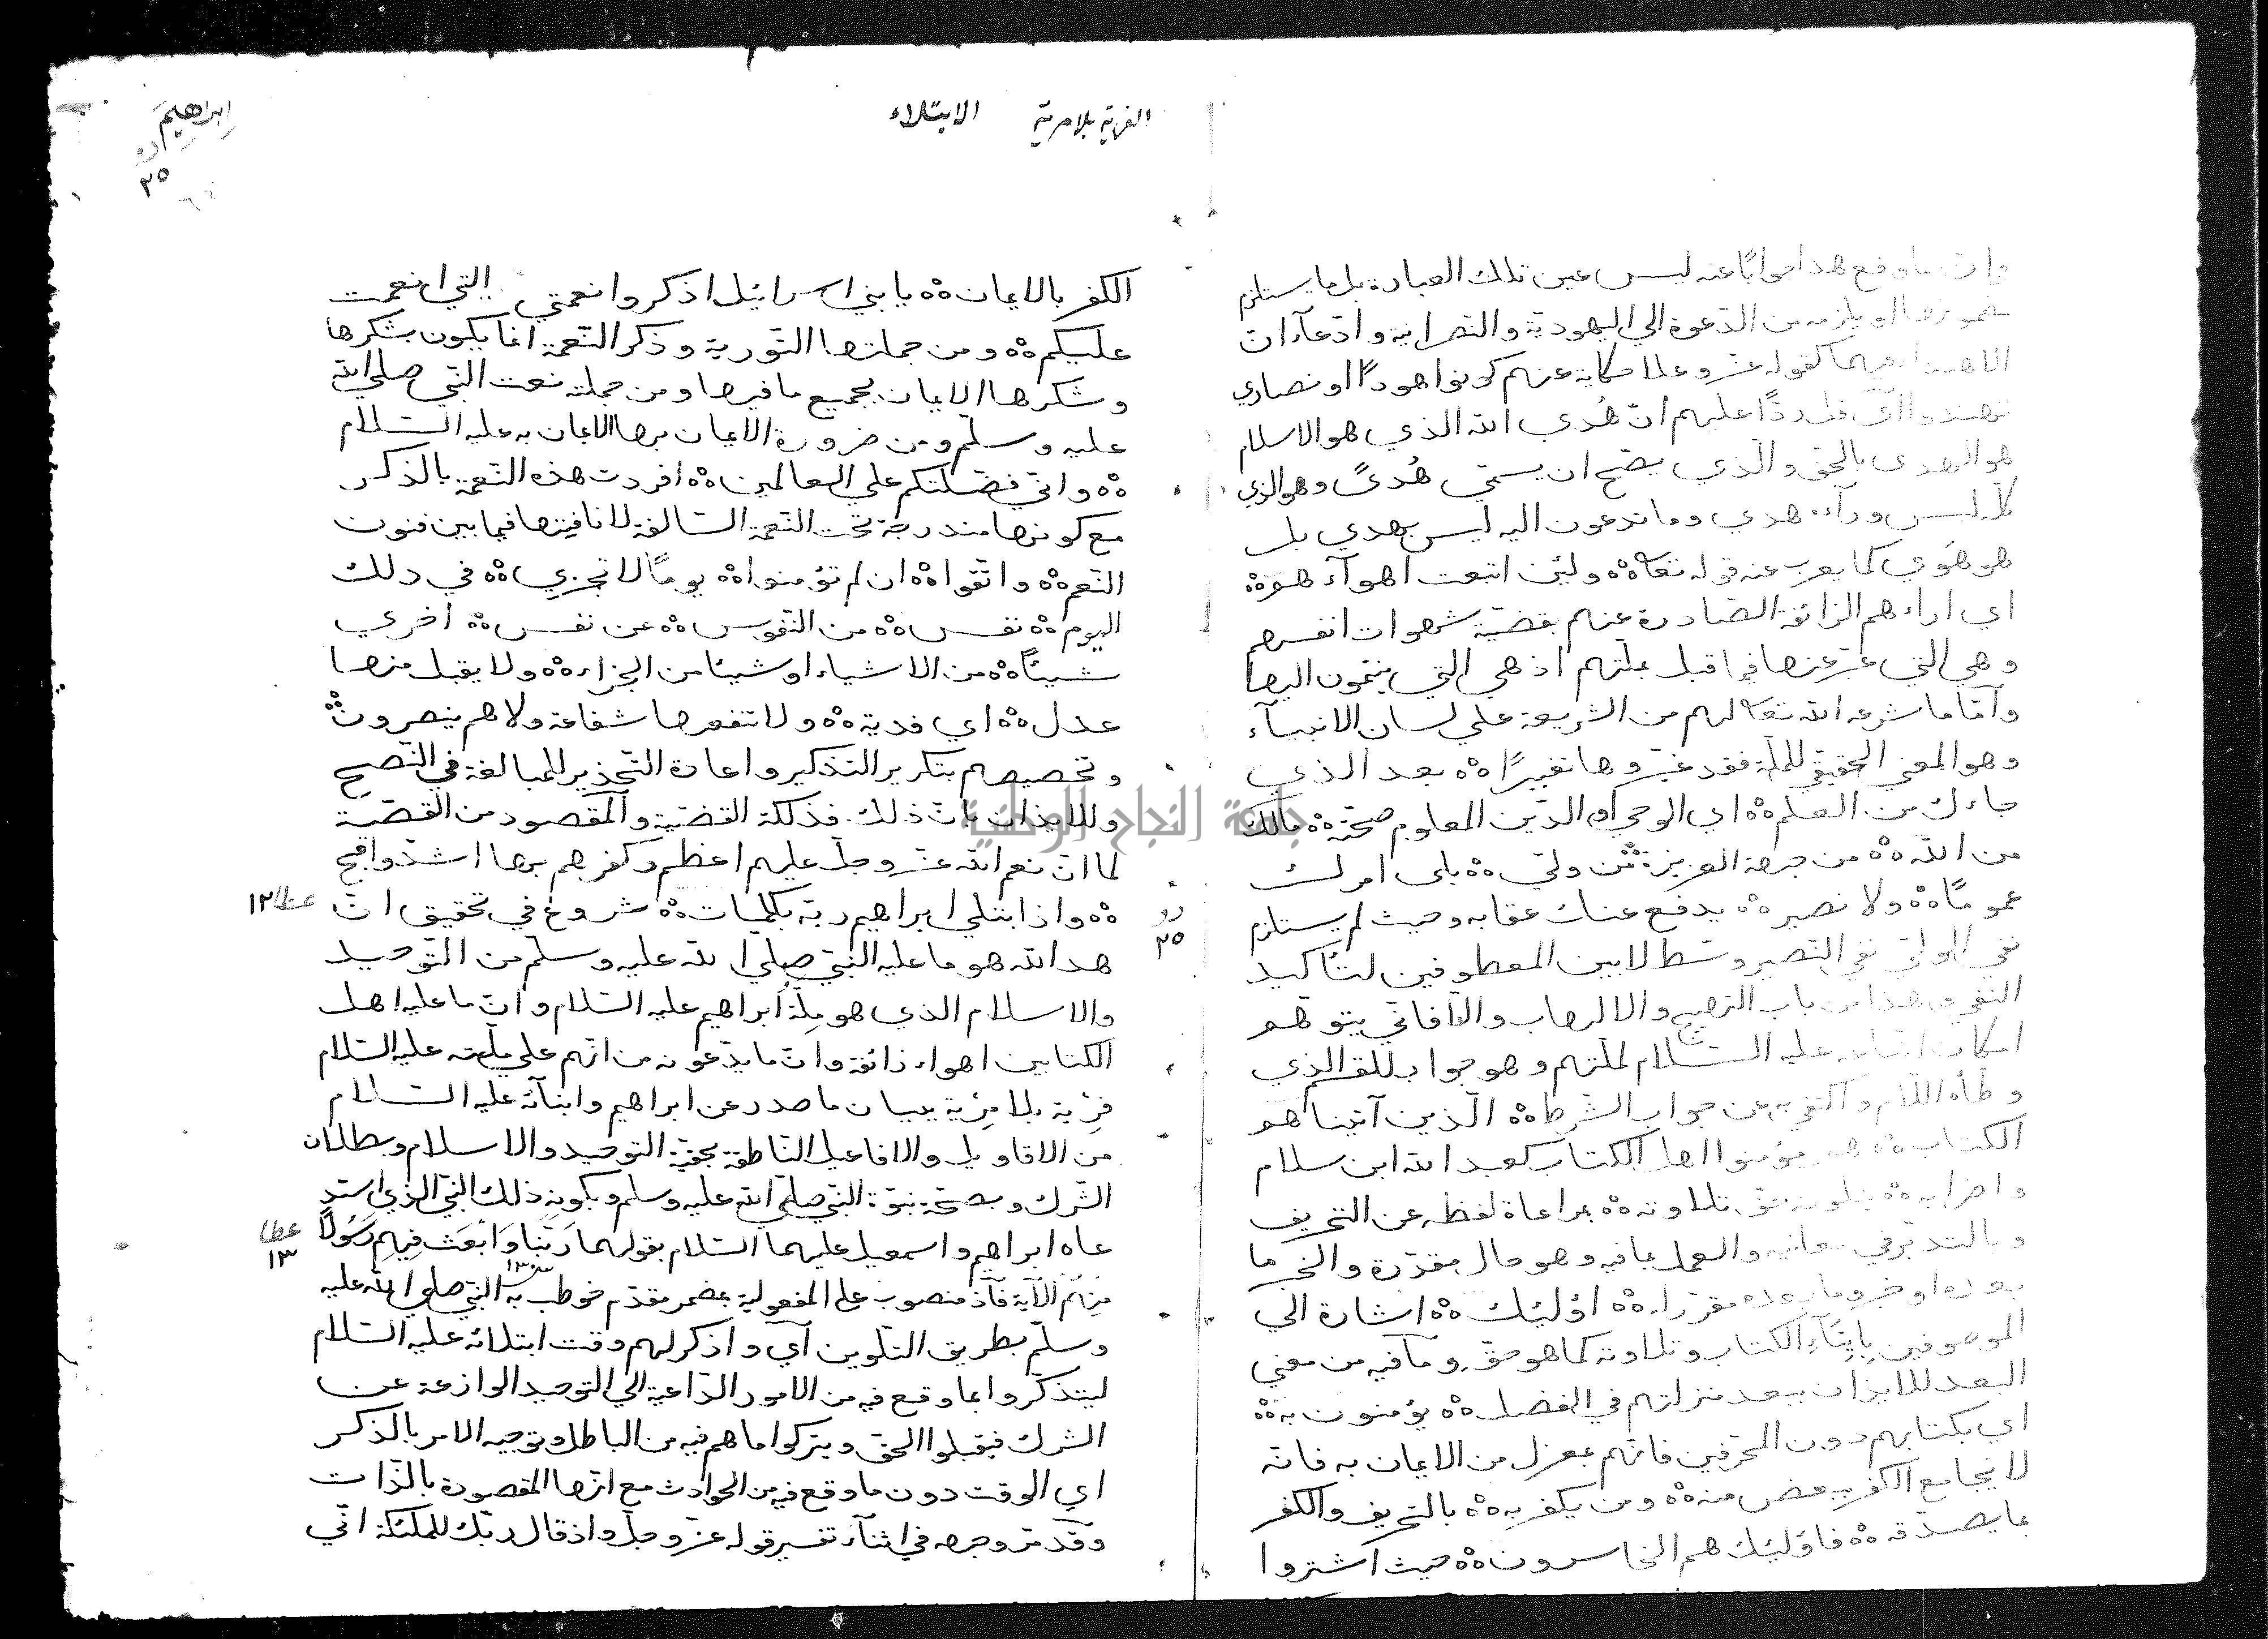 الفرية بلا مرية
الابتلاء
ابراهيم
٢٥
وان ما وقع هذا جوابًا عنه ليس عين تلك العبارة بل ما يستلزم
مضمونها او يلزمه من الدّعوة الي اليهوديّة والنصرانية وادّعآء ان
الاهتداء فيهما كقوله عزّ وعلا حكاية عنهم كونوا هودًا او نصاري
تهتدوا اي قل ردًّا عليهم انّ هُدي الله الذي هو الاسلام
هو الهدي بالحق والّذي يصّح ان يسمّي هُديً وهو الهدي
كلّه ليس ورآءه هدي وما تدعون اليه ليس بهدي بل
هو هَوَي كما يعرب عنه قوله تعاه۟ه ولئن اتبعت اهوآءهم ه۟ه
اي اراءهم الزائغة الصّادرة عنهم بقضيّة شهوات انفسهم
وهي التي عبّر عنها فيما قبل بملّتهم اذ هي التي ينتمون اليها
وآمّا ما شرعه الله تعا لهم من الشريعة علي لسان الانبيآء
وهو المعني الحقيقي للملّة فقد غيّروها تغييرًا ه۟ه بعد الذي
جاءك من العلم ه۟ه اي الوحي او الدّين المعلوم صحّته ه۟ه مالك
من الله ه۟ه من جهة العزيزة ه۟ه من ولي ه۟ه يلي امرك
عمومًا ه۟ه ولا نصير ه۟ه يدفع عنك عقابه وحيث لم يستلزم
نفي الولي نفي النّصير وسّط لا بين المعطوفين لتأكيد
النفي وهذا من باب التهييج والالهاب والّا فانّي يتوهّم
امكان اتباعه عليه السّلام لملّتهم وهو جواب للقسم الذي
وطأه اللّام واكتفي به عن جواب الشرط ه۟ه الّذين آتيناهم
الكتاب ه۟ه هم مؤمنوا اهل الكتاب كعبد الله ابن سلام
واضرابه ه۟ه يتلونه حقّ تلاوته ه۟ه بمراعاة لفظه عن التحريف
وبالتدبّر في معانيه والعمل بما فيه وهو حال مقدّرة والخبر ما
بعده او خبر وما بعده مقرّر له ه۟ه اوُلئك ه۟ه اشارة الي
الموصوفين بايتآءِ الكتاب وتلاوته كما هو حقّه وما فيه من معني
البعد للايذان ببعد منزلتهم في الفضل ه۟ه يؤمنون به ه۟ه
اي بكتابهم دون المحّرفين فانّهم بمعزل من الايمان به فانّه
لا يجامع الكفر ببعض منه ه۟ه ومن يكفر به ه۟ه بالتحريف والكفر
بما يصدّقه ه۟ه فاوُلئك هم الخاسرون ه۟ه حيث اشتروا
الكفر بالايمان ه۟ه يا بني اسرائيل اذكروا نعمتي التي انعمت
عليكم ه۟ه ومن جملتها التّورية وذكر النّعمة انما يكون بشكرها
وشكرها الايمان بجميع ما فيها ومن جملته نعت النّبّي صلي الله
عليه وسلّم ومن ضرورة الايمان بها الايمان به عليه السّلام
ه۟ه وانّي فضّلتكم علي العالمين ه۟ه افردت هذه النّعمة بالذكر
مع كونها مندرجة تحت النّعمة السّالفة لانافتها فيما بين فنون
النّعم ه۟ه واتّقوا ه۟ه ان لم تؤمنوا ه۟ه يومًا لا تجزي ه۟ه في ذلك
اليوم ه۟ه نفس ه۟ه من النّفوس ه۟ه عن نفس ه۟ه اخري
شيئًا ه۟ه من الاشياء او شيئا من الجزاء ه۟ه ولا يقبل منها
عدل ه۟ه اي فدية ه۟ه ولا تنفعها شفاعة ولا هم ينصرون ه۟ه
وتخصيصهم بتكرير التذكير واعادة التّحذير للمبالغة في النّصح
وللايذان بانّ ذلك فذلكة القضيّة والمقصود من القصّة
لما انّ نعم الله عزّ وجلّ عليهم اعظم وكفرهم بها اشدّ واقبح
ه۟ه واذ ابتلي ابراهيم ربّه بكلمات ه۟ه شروع في تحقيق انّ
عطا ١٢
٢٥
هد الله هو ما عليه النّبي صلي الله عليه وسلّم من التّوحيد
والاسلام الذي هو مِلّةُ ابراهيم عليه السّلام وانّ ما عليه اهل
الكتابين اهواء زائغة وانّ ما يدّعونه من انّهم علي ملّته عليه السّلام
فِرْية بلا مِرْية ببيان ما صدر عن ابراهيم وابنآئه عليه السّلام
من الاقاويل والافاعيل النّاطقة بحقيّة التوحيد والاسلام وبطلان
الشّرك وبصحّة نبوّة النّبّي صلي الله عليه وسلم وبكونه ذلك النّبيّ الذي استد
عاه ابراهيم واسمعيل عليهما السّلام بقولهما رَبّنَا وَابْعَث فِيهِم رَسُولًا
عطا
١٣
مِنهُم الآية فآذ منصوب علي المفعولية بمضمر مقدّم خوطب به النّبّي صلي الله عليه
وسلّم بطريق التّلوين آي واذكر لهم وقت ابتلائه عليه السّلام
ليتذكّروا بما وقع فيه من الامور الدّاعية الي التوحيد الوازعة عن
الشرك فيقبلوا الحقّ ويتركوا ما هم فيه من الباطل وتوجيه الامر بالذكر
اي الوقت دون ما وقع فيه من الحوادث مع انّها المقصودة بالذّات
وقد مرّ وجهه في اثنآء تفسير قوله عزّ وجلّ واذ قال ربّك للملئكة انّي
جامعة النجاح الوطنية